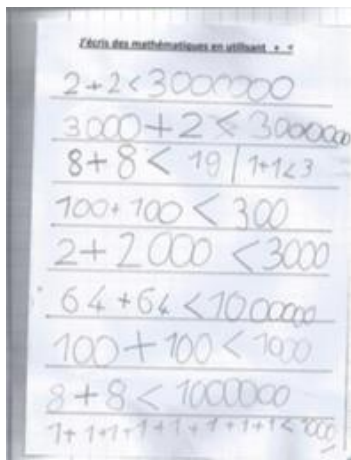 J'écris des mathématiques en utilisant + <
2+2<3000000
3000+2<3000000
8+8<19 | 1+1<3
100+100<300
2+2000<3000
64+64<1000000
100+100<1000
8+8<1000000
1+1+1+1+1+1+1+1+1<1000